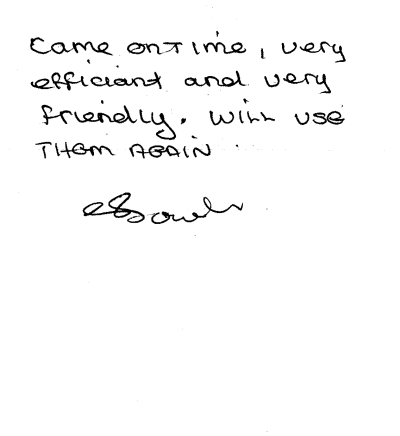 Came on Time, very
efficiant and very
friendly. Will use
THEM AGAIN